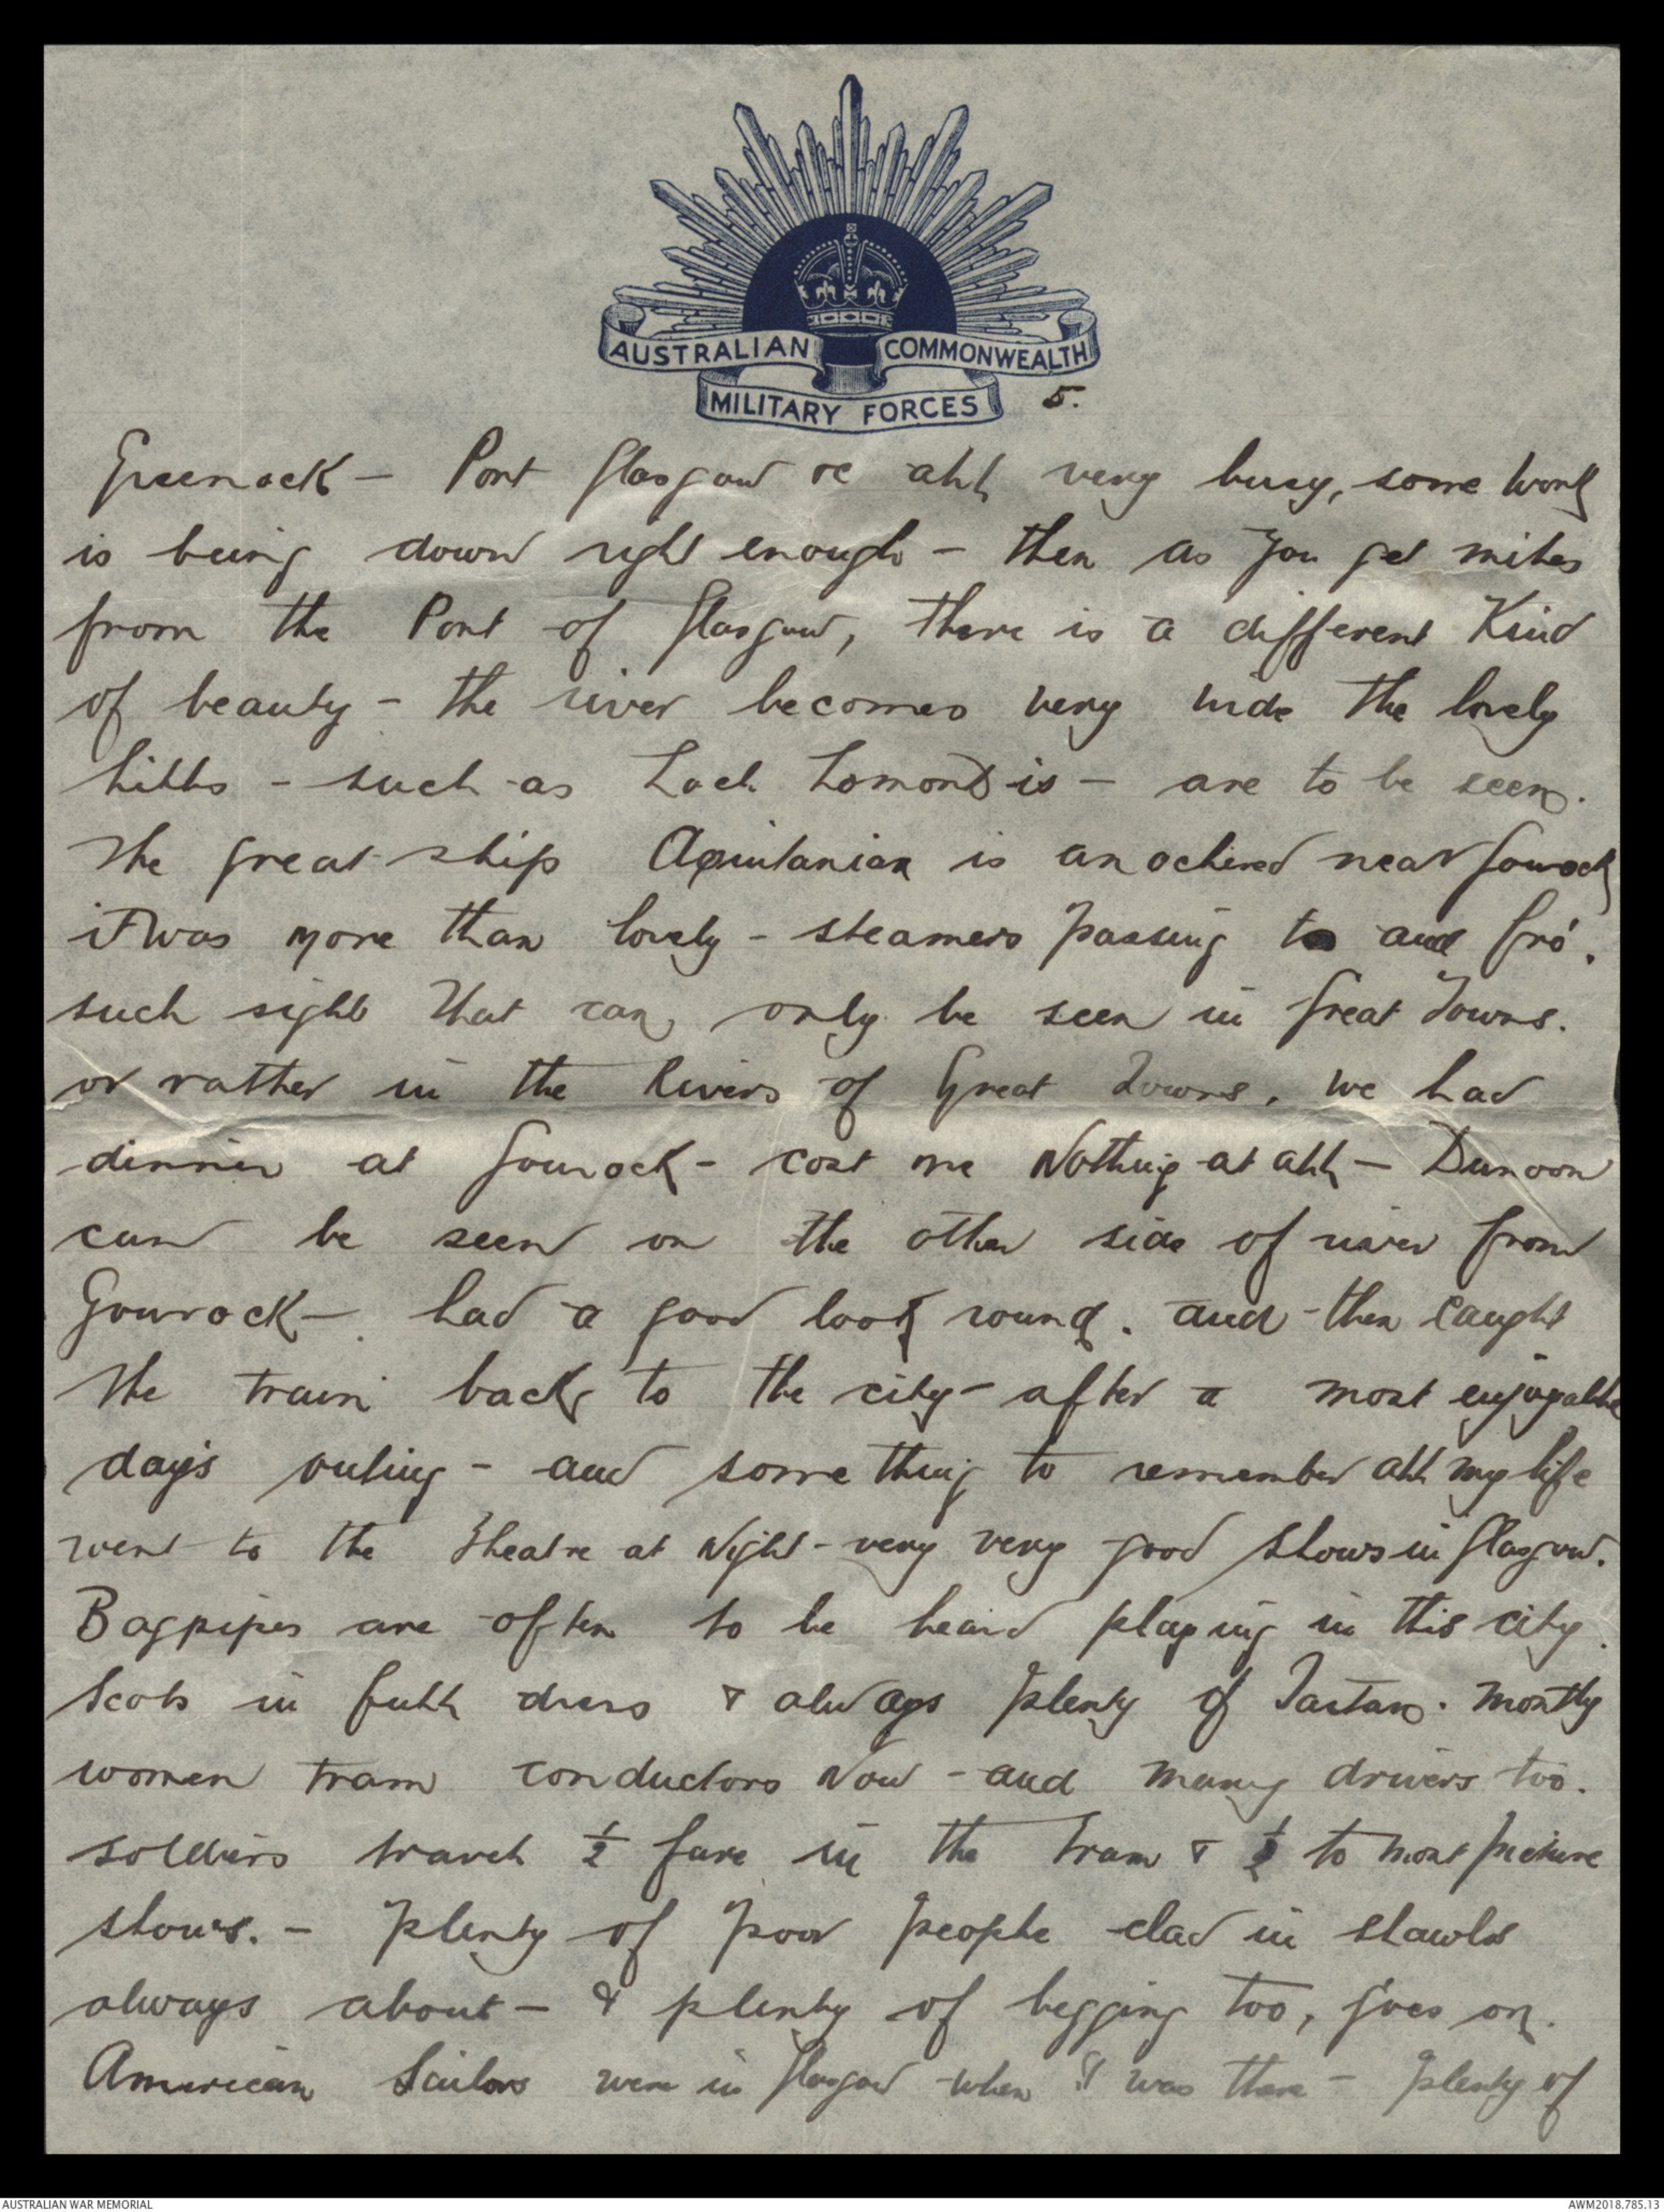 AUSTRALIAN COMMONWEALTH
MILITARY FORCES 5.
Greenock - Port Glasgow re all very busy, some work
is being down right enough - then as you get miles
from the Port of Glasgow, there is a different Kind
of beauty - the river becomes very wide the lovely
hills - such as Loch Lomond is - are to be seen.
The great ship Aquitanian is anochered near Gourock
it was more than lovely - steamers passing to and fro.
such sights that can only be seen in Great Towns.
or rather in the Rivers of Great Towns, we had
dinner at Gourock - cost me Nothing at all - Dunoon
can be seen on the other side of river from
Gourock - had a good look round. and then caught
the train back to the city - after a most enjoyable
day's outing - and something to remember all my life
went to the Theatre at Night - very very good shows in Glasgow.
Bagpipes are often to be heard playing in this city.
Scots in full dress & always plenty of Tartan. mostly
women tram conductors Now - and many drivers too.
soldiers travel ½ fare in the tram & ½ to most picture
shows. - plenty of poor people clad in shawls
always about - & plenty of begging too, goes on.
American Sailors were in Glasgow when I was there - plenty of
AUSTRALIAN WAR MEMORIAL AWM2018.785.13